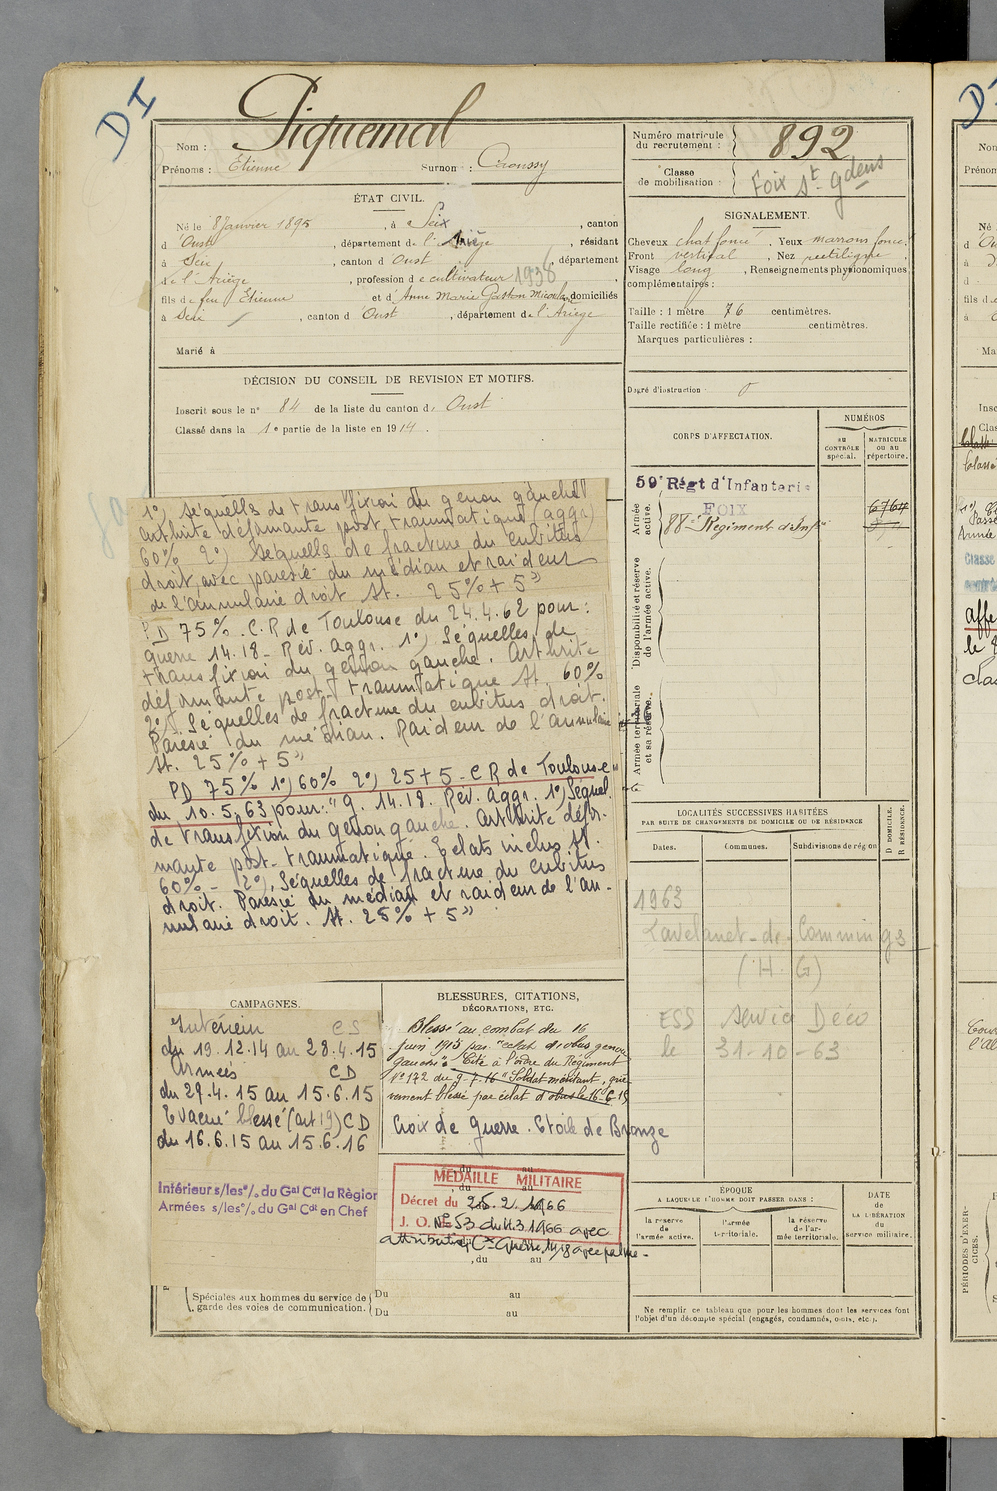 DI
Nom : Piquemal
Prénoms : Etienne Surnom :
Numéro matricule du recrutement : 892
Classe de mobilisation : Foix St. Gdens
ÉTAT CIVIL.
Né le 8 Janvier 1895, à Seix, canton
d'Oust, département de l'Ariège, résidant
à Seix, canton d'Oust, département
de l'Ariège, profession de cultivateur 1938
fils de feu Etienne et d'Anne Marie Gaston domiciliés
à Seix, canton d'Oust, département de l'Ariège
Marié à
SIGNALEMENT.
Cheveux chat foncé. Yeux marrons foncé.
Front vertical, Nez rectiligne,
Visage long, Renseignements physionomiques
complémentaires :
Taille : 1 mètre 76 centimètres.
Taille rectifiée : 1 mètre centimètres.
Marques particulières :
Degré d'instruction 0
DÉCISION DU CONSEIL DE REVISION ET MOTIFS.
Inscrit sous le n° 84 de la liste du canton d'Oust
Classé dans la 1e partie de la liste en 1914.
1°) Séquelles de transfixion du genou gauche
arthrite déformante post traumatique (aggr)
60% 2°) Séquelles de fracture du cubitus
droit, avec parésie du médian et raideur
de l'annulaire droit St. 25% + 5"
PD 75% C.R de Toulouse du 24.4.62 pour :
guerre 14.18 - Rev. Aggr. 1°) Séquelles de
transfixion du genou gauche. Arthrite
déformante post-traumatique St. 60%
2°) Séquelles de fracture du cubitus droit.
Parésie du médian. Raideur de l'annulaire
St. 25% + 5"
PD 75% 1°) 60% 2°) 25 + 5 - C R de Toulouse
du 10.5.63 pour : "g. 14.18. Rev. Aggr. 1°) Séquel.
de transfixion du genou gauche. Arthrite défor-
mante post-traumatique. Eclats inclus St.
60% - 2°), Séquelles de fracture du cubitus
droit. Parésie du médian et raideur de l'an-
nulaire droit. St. 25% + 5"
CORPS D'AFFECTATION.
NUMÉROS
AU CONTRÔLE spécial.
MATRICULE ou au répertoire.
Armée active.
59e Régt d'Infanterie
FOIX
88e Régiment d'Infie
6764
Disponibilité et réserve de l'armée active.
Armée territoriale et sa réserve.
LOCALITÉS SUCCESSIVES HABITÉES
PAR SUITE DE CHANGEMENTS DE DOMICILE OU DE RÉSIDENCE
Dates.
Communes.
Subdivisions de région
D DOMICILE.
R RÉSIDENCE.
1963
Lavelanet-de-Comminges
(H. G)
ESS Service Déco
le 31-10-63
CAMPAGNES.
Intérieur CS
du 19.12.14 au 28.4.15
Armées CD
du 29.4.15 au 15.6.15
Evacué blessé (art 19) CD
du 16.6.15 au 15.6.16
Intérieur s/les °/. du Gal Cdt la Région
Armées s/les °/. du Gal Cdt en Chef
BLESSURES, CITATIONS,
DÉCORATIONS, ETC.
Blessé au combat du 16
juin 1915 par "éclat d'obus genou
gauche". Cité à l'ordre du Régiment
N° 172 du 9-7-16 "Soldat méritant, griè
vement blessé par éclat d'obus le 16-6-15
Croix de Guerre. Etoile de Bronze
MÉDAILLE MILITAIRE
Décret du 25.2.1966
J. O. N° 53 du 4.3.1966 avec
attribution Cx Guerre 14/18 avec palme -
, du au
Spéciales aux hommes du service de garde des voies de communication.
Du au
Du au
ÉPOQUE
A LAQUELLE L'HOMME DOIT PASSER DANS :
la réserve de l'armée active.
l'armée territoriale.
la réserve de l'armée territoriale.
DATE DE LA LIBÉRATION du service militaire.
Ne remplir ce tableau que pour les hommes dont les services font
l'objet d'un décompte spécial (engagés, condamnés, omis, etc.).
PÉRIODES D'EXER-
CICES.